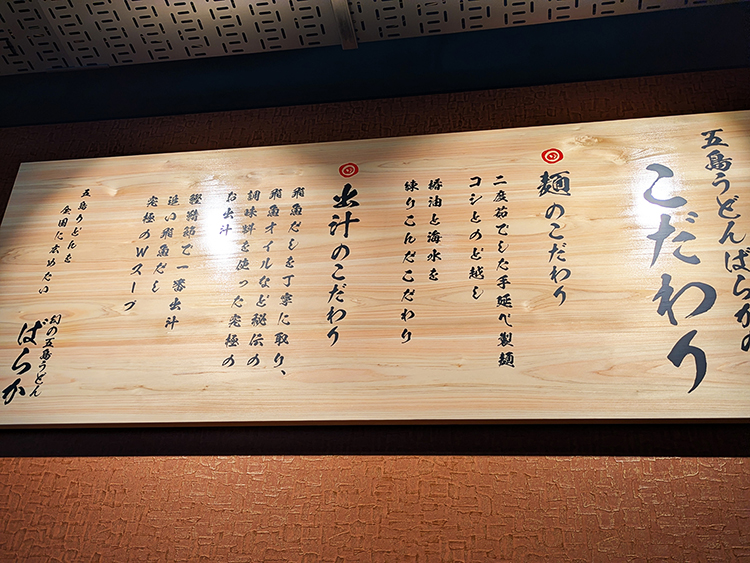 五島うどんばらかの
こだわり
麺のこだわり
二度茹でした手延べ製麺
コシとのど越し
椿油と海水を
練りこんだこだわり
出汁のこだわり
飛魚だしを丁寧に取り、
飛魚オイルなど秘伝の
調味料を使った究極の
お出汁
で一番出汁
追い飛魚だし
究極のWスープ
五島うどんを
全国に広めたい
幻の五島うどん
ばらか